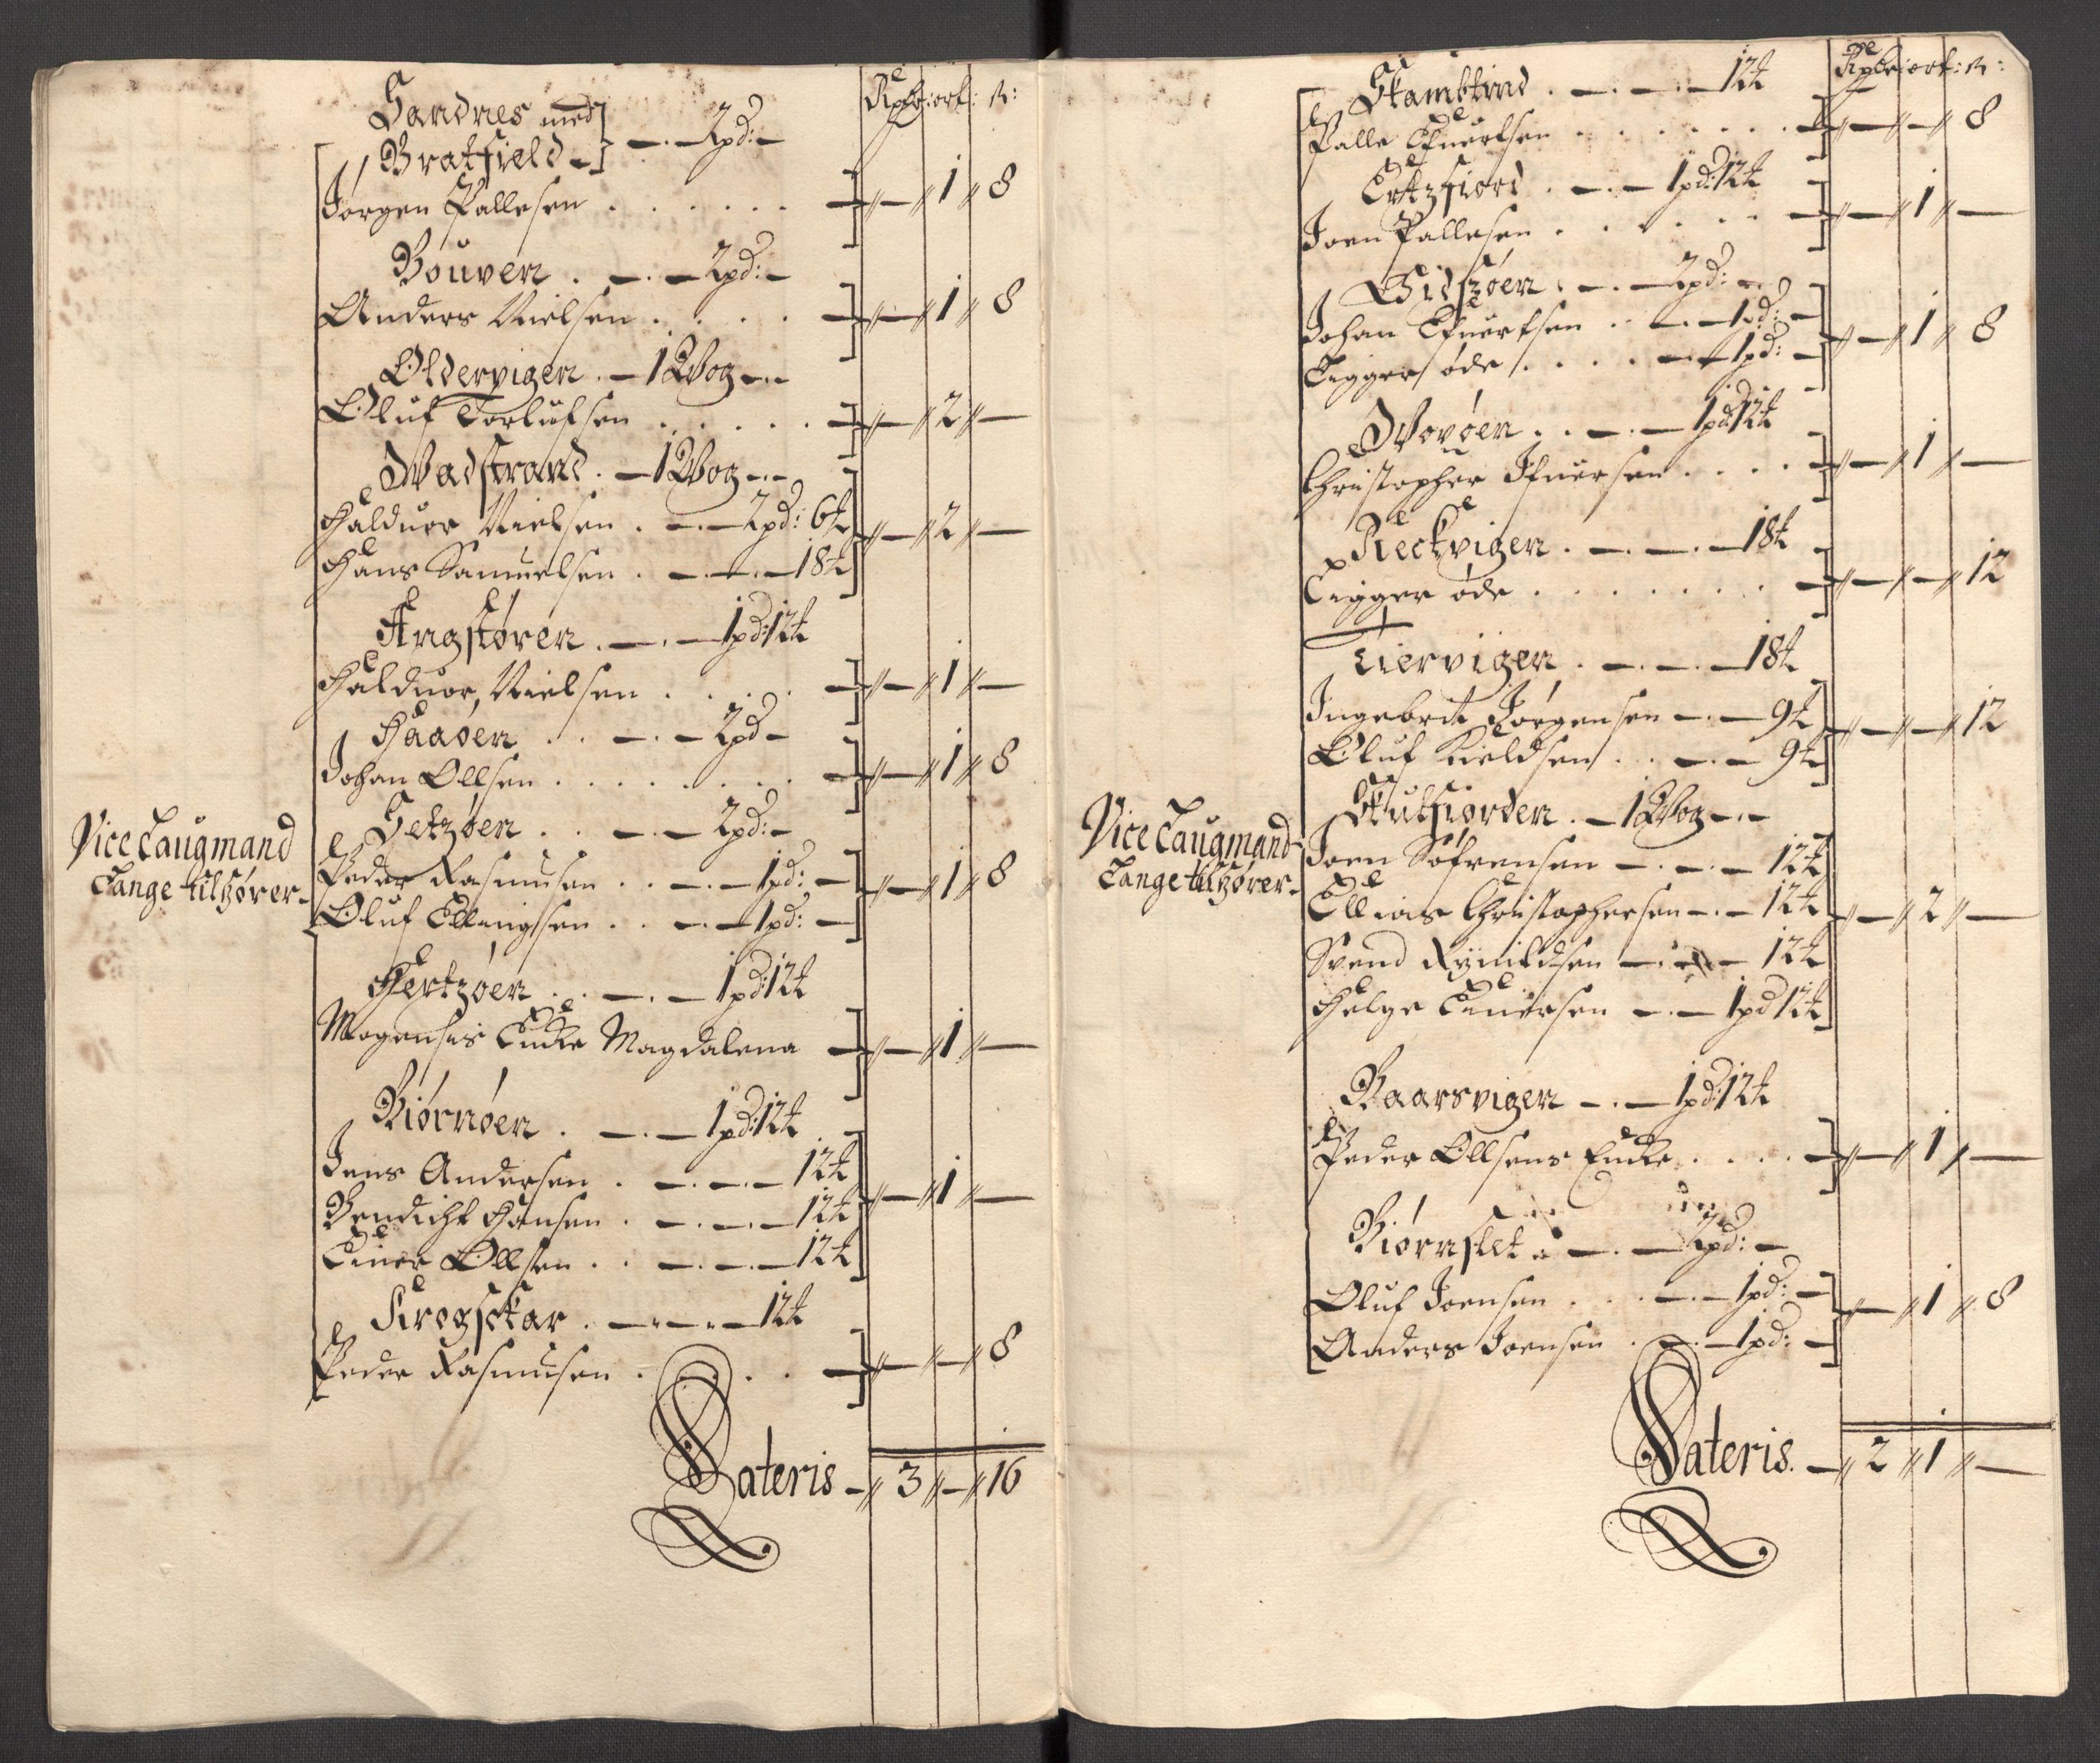 Rdlr: ort: ß:
Sandnes med
Bratfield - 2pd: -
Jørgen Pallesen - 1 8
Bouven 2pd: -
Anders Nielsen - 1 8
Oldervigen - 1 Wog
Oluf Torlufsen - 2 -
Wadstrand - 1 Wog
Halduor Nielsen 2pd: 6t - 2 -
Hans Samuelsen 18t
1pd: 12t
Halduor Nielsen - 1 -
Haaøen 2pd -
Johan Ollsen - 1 8
Setzøen 2pd: -
Vice Laugmand
Tange tilhører
Peder Rasmusen 1pd: - - 1 8
Oluf Ellingsen 1pd: -
Hertzøen 1pd: 12t
Mogenses Encke Magdalena - 1 -
Biørnøen 1pd: 12t
Jens Andersen 12t
Bendicht Hansen 12t - 1 -
Einer Ollsen 12t
Krogsckar 12t
Peder Rasmusen - - 8
Lateris - 3 - 16
Rdlr: ort: ß:
Skambtind 12t
Palle Efuertsen - - 8
Ertzfiord 1pd: 12t
Joen Pallesen - 1 -
Gidszøen 2pd: -
Johan Efuertsen 1pd: - - 1 8
Ligger øde 1pd: -
Wovøen 1pd 12t
Christopher Ifuersen - 1 -
Reckvigen 18t
Ligger øde - - 12
Tiervigen 18t
Ingebret Jørgensen 9t - - 12
Oluf Kieldsen 9t
Skulfiorden - 1 Wog
Vice Laugmand
Tange tilhører
Joen Søfrensen 12t
Ellias Christophersen 12t - 2 -
Svend 12t
Helge Einersen 1pd 12t
Baarsvigen 1pd: 12t
Peder Ollsens Encke - 1 -
Biørnslet 2pd: -
Oluf Joensen 1pd: - - 1 8
Anders Joensen 1pd: -
Lateris. - 2 1 -